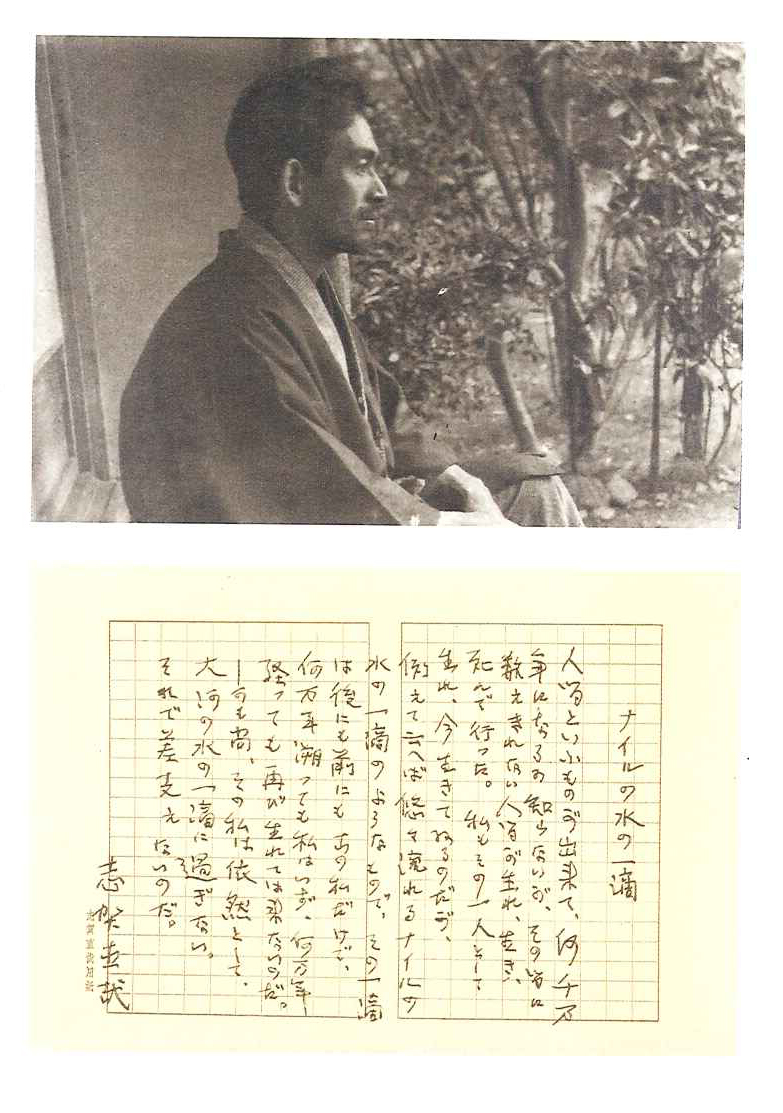 ナイルの水の一滴
人間といふものが出来て、何千万
年になるか知らないが、その間に
数えきれない人間が生れ、生き、
死んで行った。私もその一人として
生れ、今生きてゐるのだが、
例えて云へば悠々流れるナイルの
水の一滴のようなもので、その一滴
は後にも前にもこの私だけで、
何万年溯っても私はいず、何万年
経っても再び生れては来ないのだ。
しかも尚、その私は依然として、
大河の水の一滴に過ぎない。
それで差支えないのだ。
志賀直哉
志賀直哉用紙